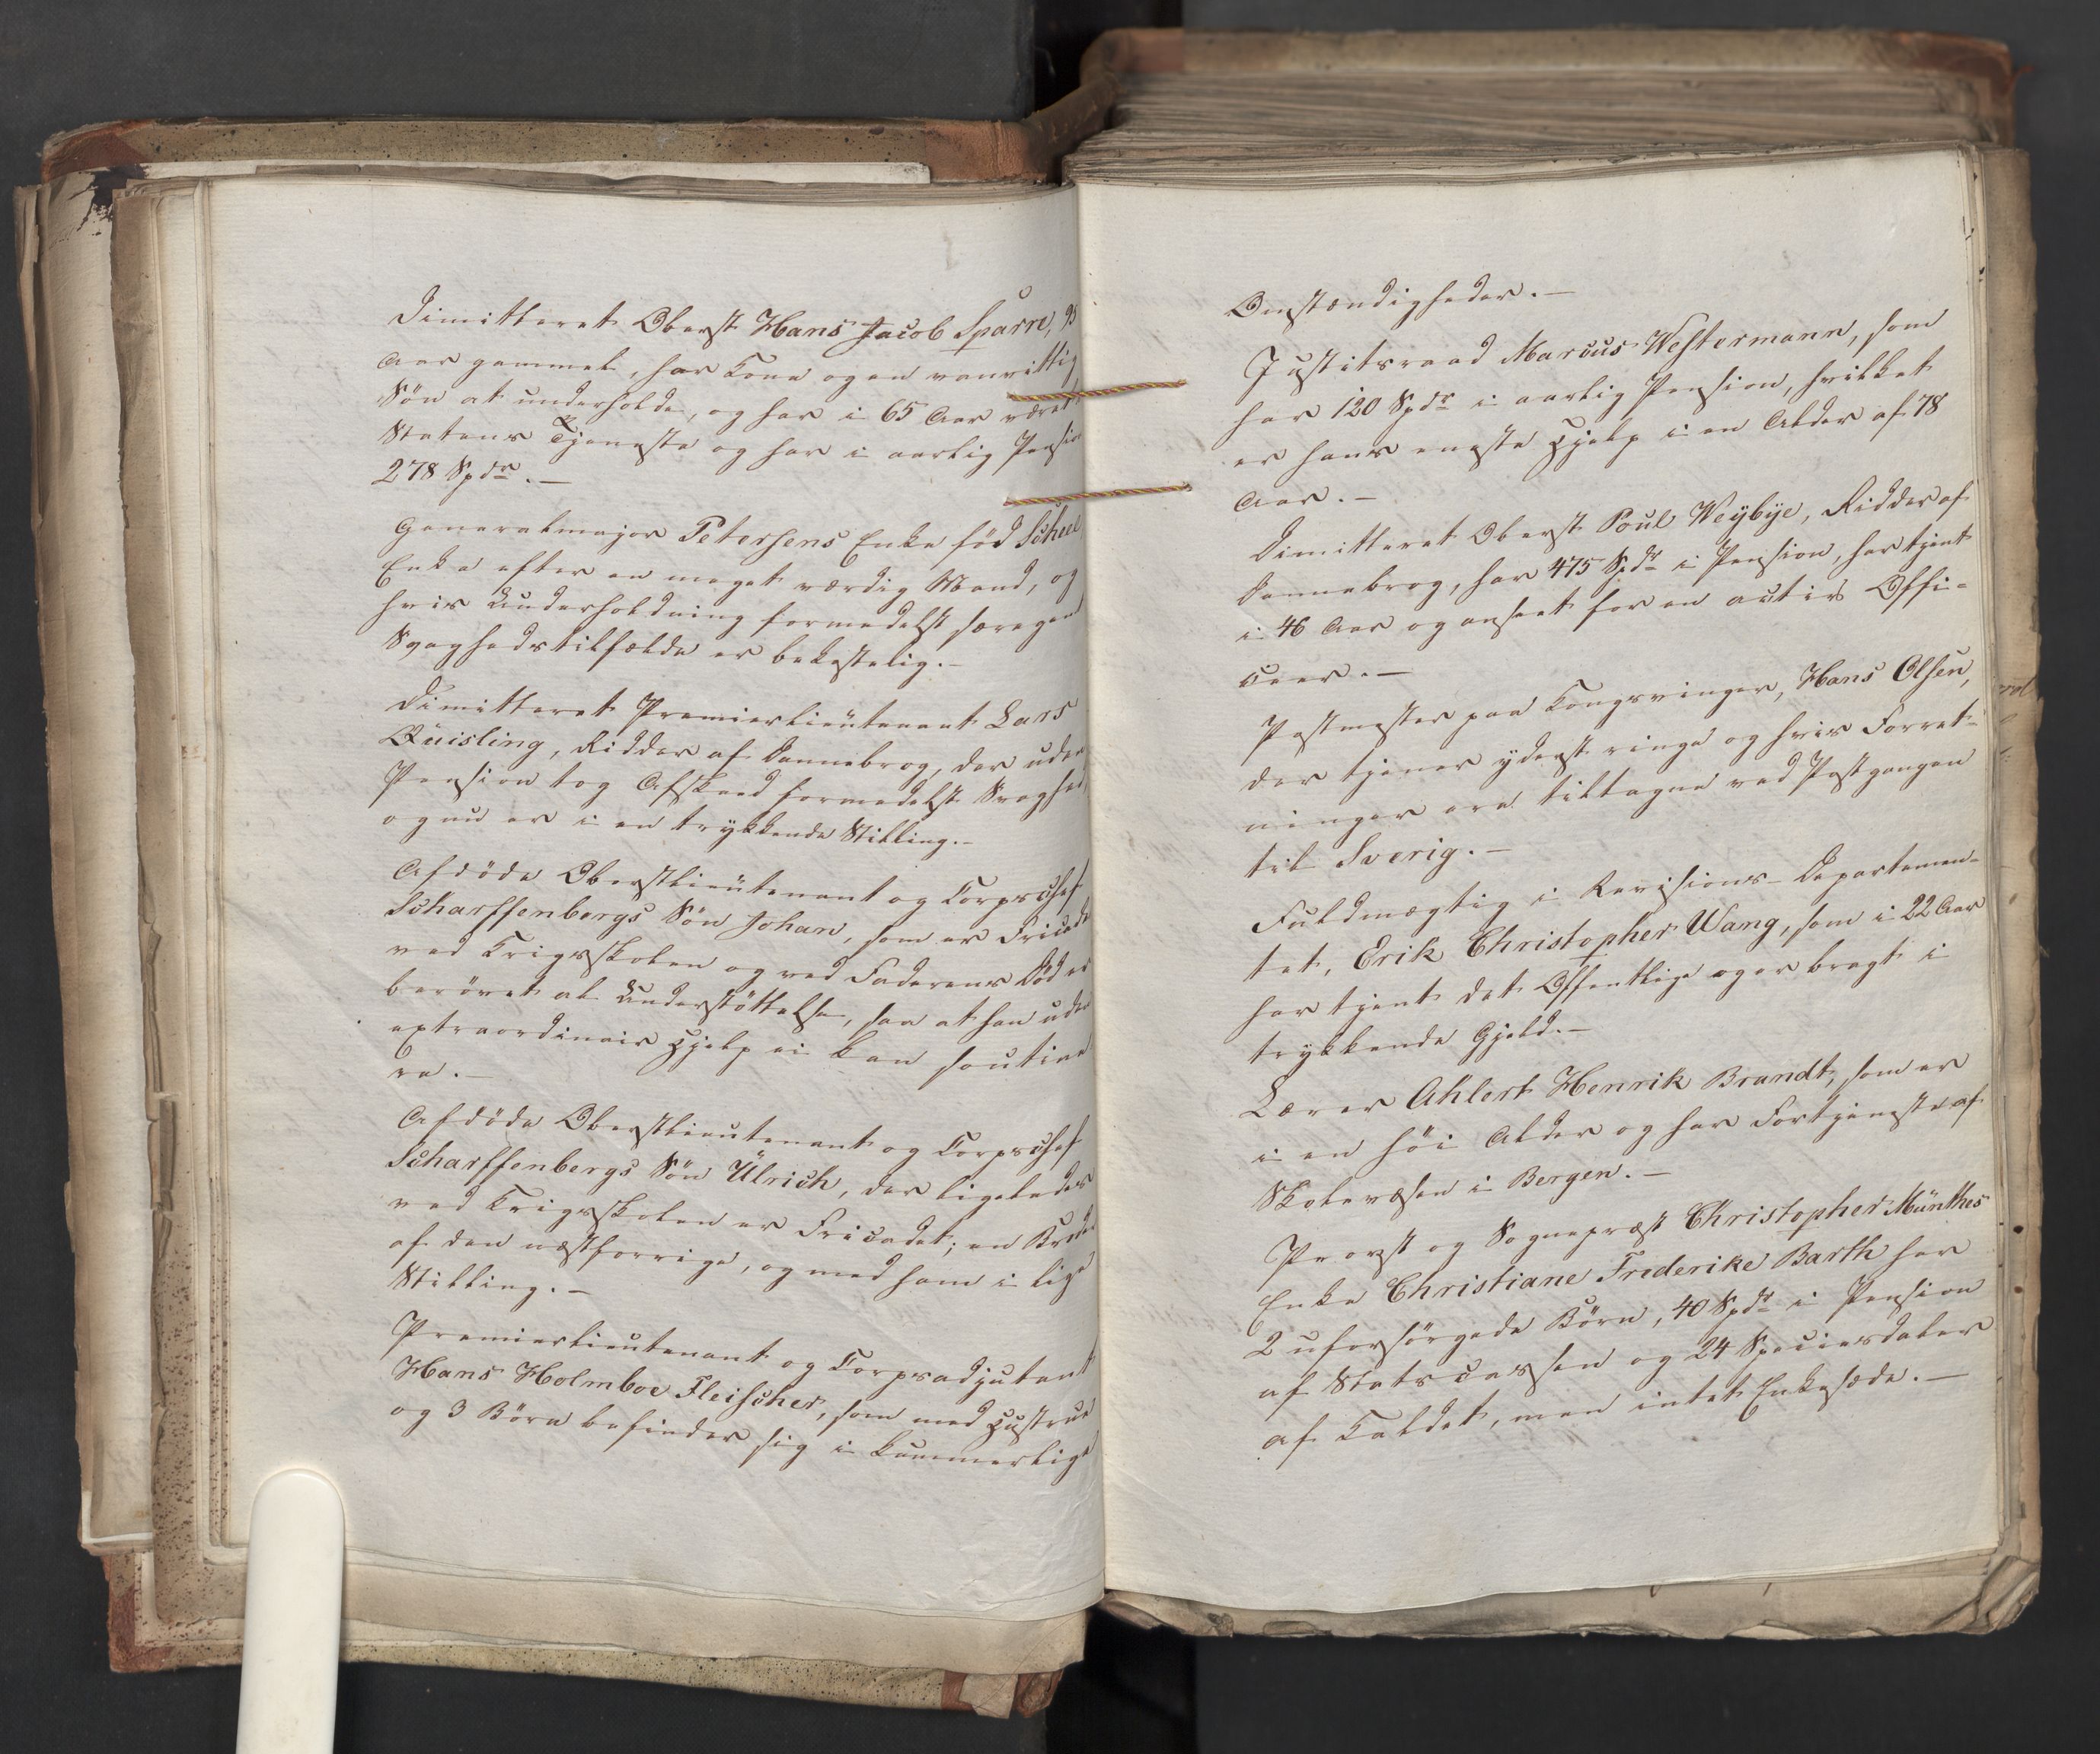 Dimitteret Oberst Hans Jacob Sparre, 95
Aar gammel, har Kone og en vanvittig
Sön at underholde, og har i 65 Aar været i
Statens Tjeneste og har i aarlig Pension
278 Spdr. –
Generalmajor Petersens Enke fød Scheel,
Enke efter en meget værdig Mand, og
hvis Underholdning formedelst særegent
Svaghedstilfælde er bekostelig. –
Dimitteret Premierlieutenant Lars
Quisling, Ridder af Dannebrog, der uden
Pension tog Afskeed formedelst Svaghed,
og nu er i en trykkende Stilling. –
Afdöde Oberstlieutenant og Corpschef
Scharffenbergs Sön Johan, som er Fricadet
ved Krigsskolen og ved Faderens Död er
berövet al Understöttelse, saa at han uden
extraordinair Hjelp ei kan soutine
re. –
Afdöde Oberstlieutenant og Corpschef
Scharffenbergs Sön Ülrich, der ligeledes
ved Krigsskolen er Fricadet; en Broder
af den næstforrige, og med ham i lige
Stilling. –
Premierlieutenant og Corpsadjutant
Hans Holmboe Fleischer, som med Hustrue
og 3 Börn befinder sig i kummerlige
Omstændigheder. –
Justitsraad Marcus Westermann, som
har 120 Spdr i aarlig Pension, hvilket
er hans eneste Hjelp i en Alder af 78
Aar. –
Dimitteret Oberst Poul Weÿbÿe, Ridder af
Dannebrog, har 475 Spdr i Pension, har tjent
i 46 Aar og anseet for en activ Offi-
ceer. –
Postmester paa Kongsvinger, Hans Olsen,
der tjener yderst ringe og hvis Forret-
ninger ere tiltagne ved Postgangen
til Sverig. –
Fuldmægtig i Revisions-Departemen-
tet, Erik Christopher Wang, som i 22 Aar
har tjent det Offentlige og er bragt i
trykkende Gjeld. –
Lærer Ahlert Henrik Brandt, som er
i en höi Alder og har Fortjeneste af
Skolevæsen i Bergen. –
Provst og Sognepræst Christopher Münthes
Enke Christiane Frederike Barth har
2 uforsörgede Börn, 40 Spdr i Pension
af Statscassen og 24 Speciesdaler
af Kaldet, men intet Enkesæde. –